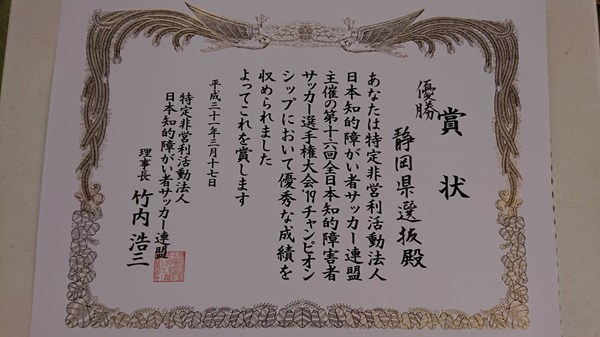 賞状
優勝
静岡県選抜殿
あなたは特定非営利活動法人
日本知的障がい者サッカー連盟
主催の第十六回全日本知的障害者
サッカー選手権大会'19チャンピオン
シップにおいて優秀な成績を
収められました
よってこれを賞します
平成三十一年三月十七日
特定非営利活動法人
日本知的障がい者サッカー連盟
理事長 竹内浩三